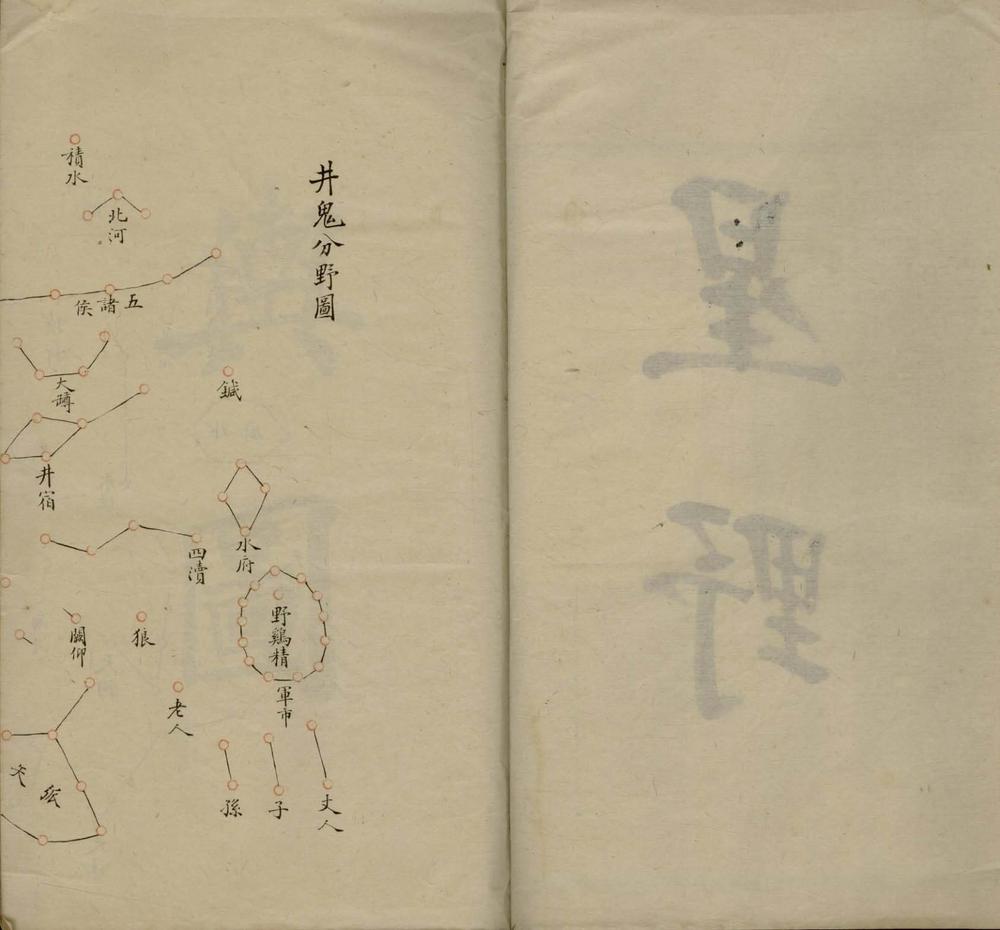 井鬼分野圖
積水
北河
五諸侯
大罇
鉞
井宿
水府
四瀆
野鷄精
軍市
狼
闕仰
老人
丈人
子
孫